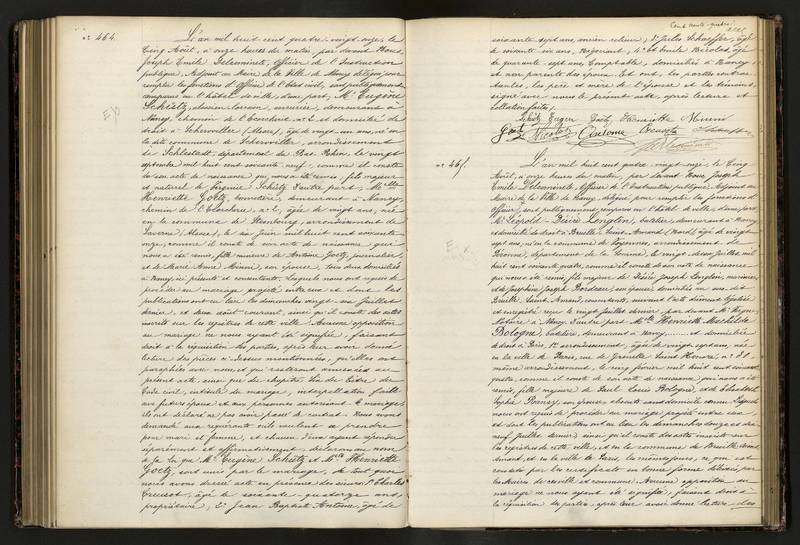 n° 464.
L'an mil huit cent quatre-vingt-onze, le
Cinq Août, à onze heures du matin, par devant Nous,
Joseph Emile Delcominete, Officier de l'Instruction
publique, Adjoint au Maire de la Ville de Nancy délégué pour
remplir les fonctions d'Officier de l'Etat civil, sont publiquement
comparus en l'hôtel de ville, d'une part, Mr Eugène
Schiétz, ouvrier, demeurant à
Nancy, chemin de n° 2, et domicilié de
droit à Scherwiller (Alsace), âgé de vingt-un ans, né en
la dite commune de Scherwiller, arrondissement
de Schlestadt, département du Bas-Rhin, le vingt
septembre mil huit cent soixante-neuf, comme il conste
de son acte de naissance qui nous a été remis, fils majeur
et naturel de Virginie Schiétz; d'autre part, Melle
Henriette Goetz, demeurant à Nancy,
chemin de n° 2, âgée de vingt ans, née
en la commune de Steinbourg, arrondissement de
Saverne (Alsace), le six Juin mil huit cent soixante
onze, comme il conste de son acte de naissance qui
nous a été remis, fille mineure de Antoine Goetz, journalier,
et de Marie Anne son épouse, tous deux domiciliés
à Nancy, ici présents et consentants. Lesquels nous ont requis de
procéder au mariage projeté entre eux et dont les
publications ont eu lieu les dimanches vingt-six Juillet
dernier, et deux Août courant, ainsi qu'il conste des actes
inscrits sur les registres de cette ville. Aucune opposition
au mariage ne nous ayant été signifiée, faisant
droit à la réquisition des parties, après leur avoir donné
lecture des pièces ci-dessus mentionnées, qu'elles ont
paraphées avec nous, et qui resteront annexées au
présent acte, ainsi que du chapitre Six du Titre du
Code civil, intitulé du mariage, interpellation faite
aux futurs époux, et aux personnes autorisant le mariage,
ils ont déclaré ne pas avoir passé de contrat. Nous avons
demandé aux requérants s'ils veulent se prendre
pour mari et femme, et chacun d'eux ayant répondu
séparément et affirmativement, déclarons au nom
de la loi que Mr Eugène Schiétz et Melle Henriette
Goetz, sont unis par le mariage, de tout quoi
nous avons dressé acte en présence des sieurs: 1° Charles
âgé de soixante-quatorze ans,
propriétaire, 2° Jean Baptiste Antoine, âgé de
soixante-sept ans, ancien 3° Jules Schaeffer, âgé
de soixante-six ans, négociant, 4° et Emile Nicolas, âgé
de quarante-sept ans, Comptable, domiciliés à Nancy
et non parents des époux. Et ont, les parties contrac-
tantes, les père et mère de l'épouse et les témoins,
signé avec nous le présent acte, après lecture et
collation faites.
Schiétz Eugen Goetz Henriette
Goetz Nicolas Antoine
n° 465.
L'an mil huit cent quatre-vingt-onze, le Cinq
Août, à onze heures du matin, par devant Nous, Joseph
Emile Delcominete, Officier de l'Instruction publique, Adjoint au
Maire de la Ville de Nancy, délégué pour remplir les fonctions
d'Officier, sont publiquement comparus en l'hôtel de ville, d'une part,
Mr Léopold Désiré Longlin, batelier, demeurant à Nancy
et domicilié de droit à Bruille-Saint-Amand (Nord), âgé de vingt-
sept ans, né en la commune de arrondissement de
Péronne, département de la Somme, le vingt-deux Juillet mil
huit cent soixante-quatre, comme il conste de son acte de naissance
qui nous a été remis, fils majeur de Désiré Joseph Longlin, marinier,
et de Joseph Bordeau, son épouse, domiciliés au susdit
Bruille-Saint-Amand, consentants, suivant l'acte dûment légalisé
et enregistré reçu le vingt Juillet dernier, par devant Me
Notaire à d'autre part, Melle Henriette Mathilde
Bologne, batelière, demeurant à Nancy, et domiciliée
de droit à Paris, 1er arrondissement, âgée de vingt-sept ans, née
en la ville de Paris, rue de Grenelle Saint Honoré, n°
même arrondissement, le cinq février mil huit cent soixante
quatre, comme il conste de son acte de naissance qui nous a été
remis, fille majeure de Louis Bologne, et de Elisabeth
Sophie son épouse, absents sans domicile connu. Lesquels
nous ont requis de procéder au mariage projeté entre eux
et dont les publications ont eu lieu les dimanches douze et dix-
neuf Juillet dernier, ainsi qu'il conste des actes inscrits sur
les registres de cette ville, et en la commune de Bruille-Saint-
Amand, et en la ville de Paris, les mêmes jours, ce qui est
constaté par les certificats en bonne forme délivrés par
les Maires de ces ville et commune. Aucune opposition au
mariage ne nous ayant été signifiée, faisant droit à
la réquisition des parties, après leur avoir donné lecture des